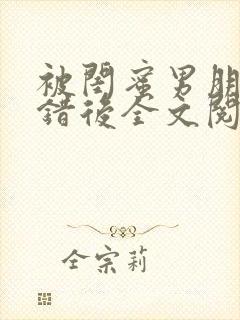 被閨蜜男朋
錯後全文閱
仝宗莉